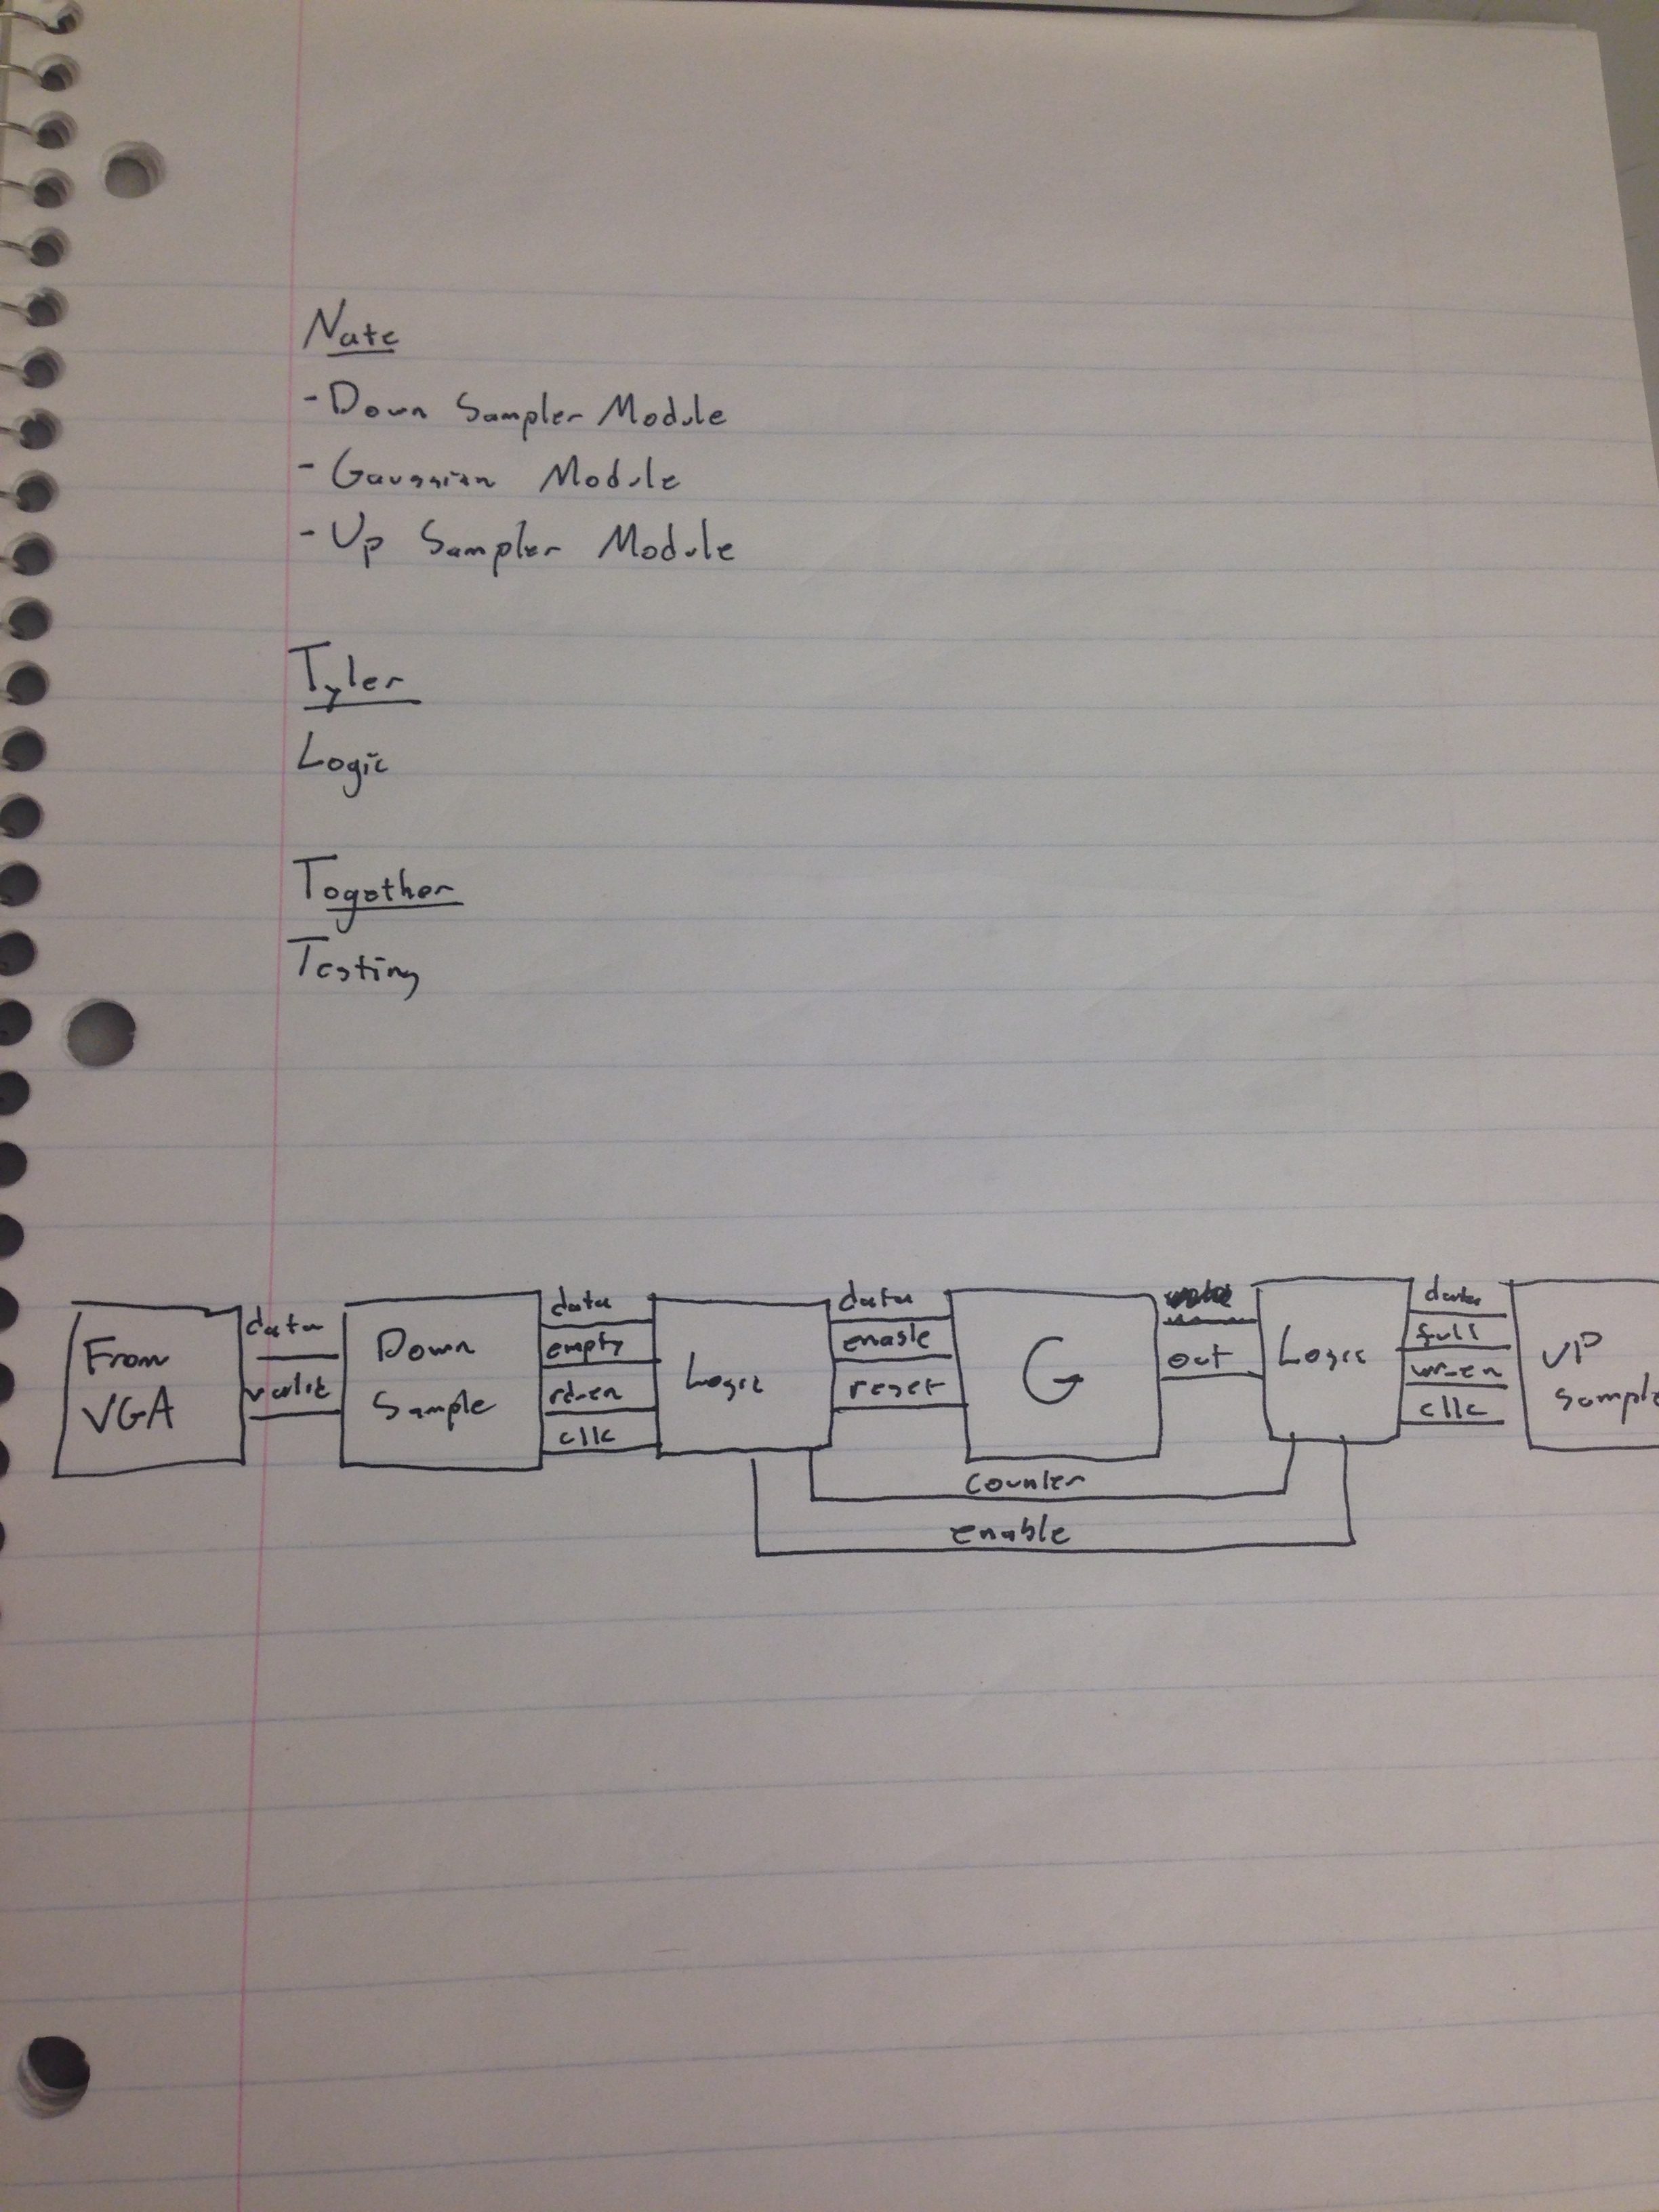 Nate
- Down Sampler Module
- Gaussian Module
- Up Sampler Module
Tyler
Logic
Together
Testing
From
VGA
data
valid
Down
Sample
data
empty
rd-en
clk
Logic
data
enable
reset
G
out
Logic
data
full
wr-en
clk
UP
Sample
Counter
enable